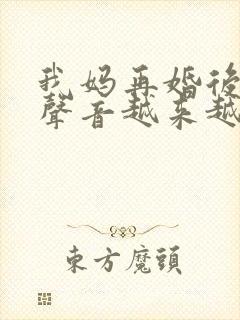 我妈再婚後
聲音越来越
東方魔頭